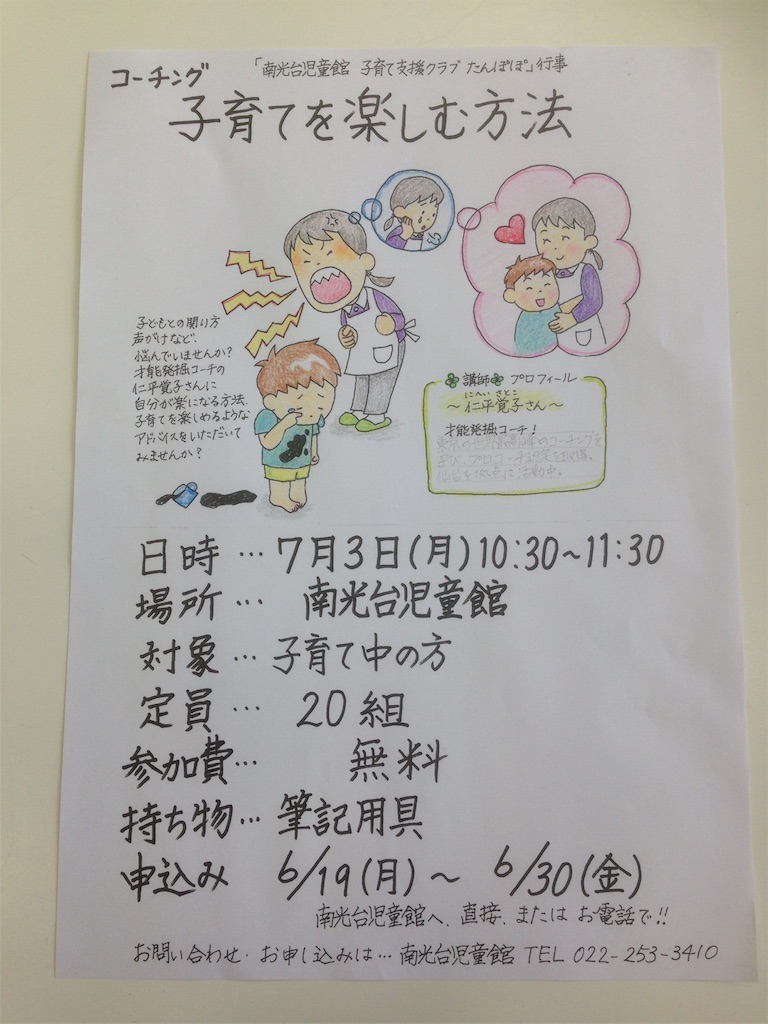 コーチング
「南光台児童館 子育て支援クラブ たんぽぽ」行事
子育てを楽しむ方法
子どもとの関り方
声がけなど、
悩んでいませんか?
才能発掘コーチの
仁平覚子さんに
自分が楽になる方法、
子育てを楽しめるような
アドバイスをいただいて
みませんか?
講師 プロフィール
にへい さとこ
〜仁平覚子さん〜
才能発掘コーチ!
のコーチングを
学び、プロコーチ
仙台を拠点に活動中。
日時…7月3日(月)10:30~11:30
場所… 南光台児童館
対象…子育て中の方
定員… 20組
参加費… 無料
持ち物…筆記用具
申込み 6/19(月)~ 6/30(金)
南光台児童館へ、直接、または お電話で!!
お問い合わせ・お申し込みは…南光台児童館 TEL 022-253-3410